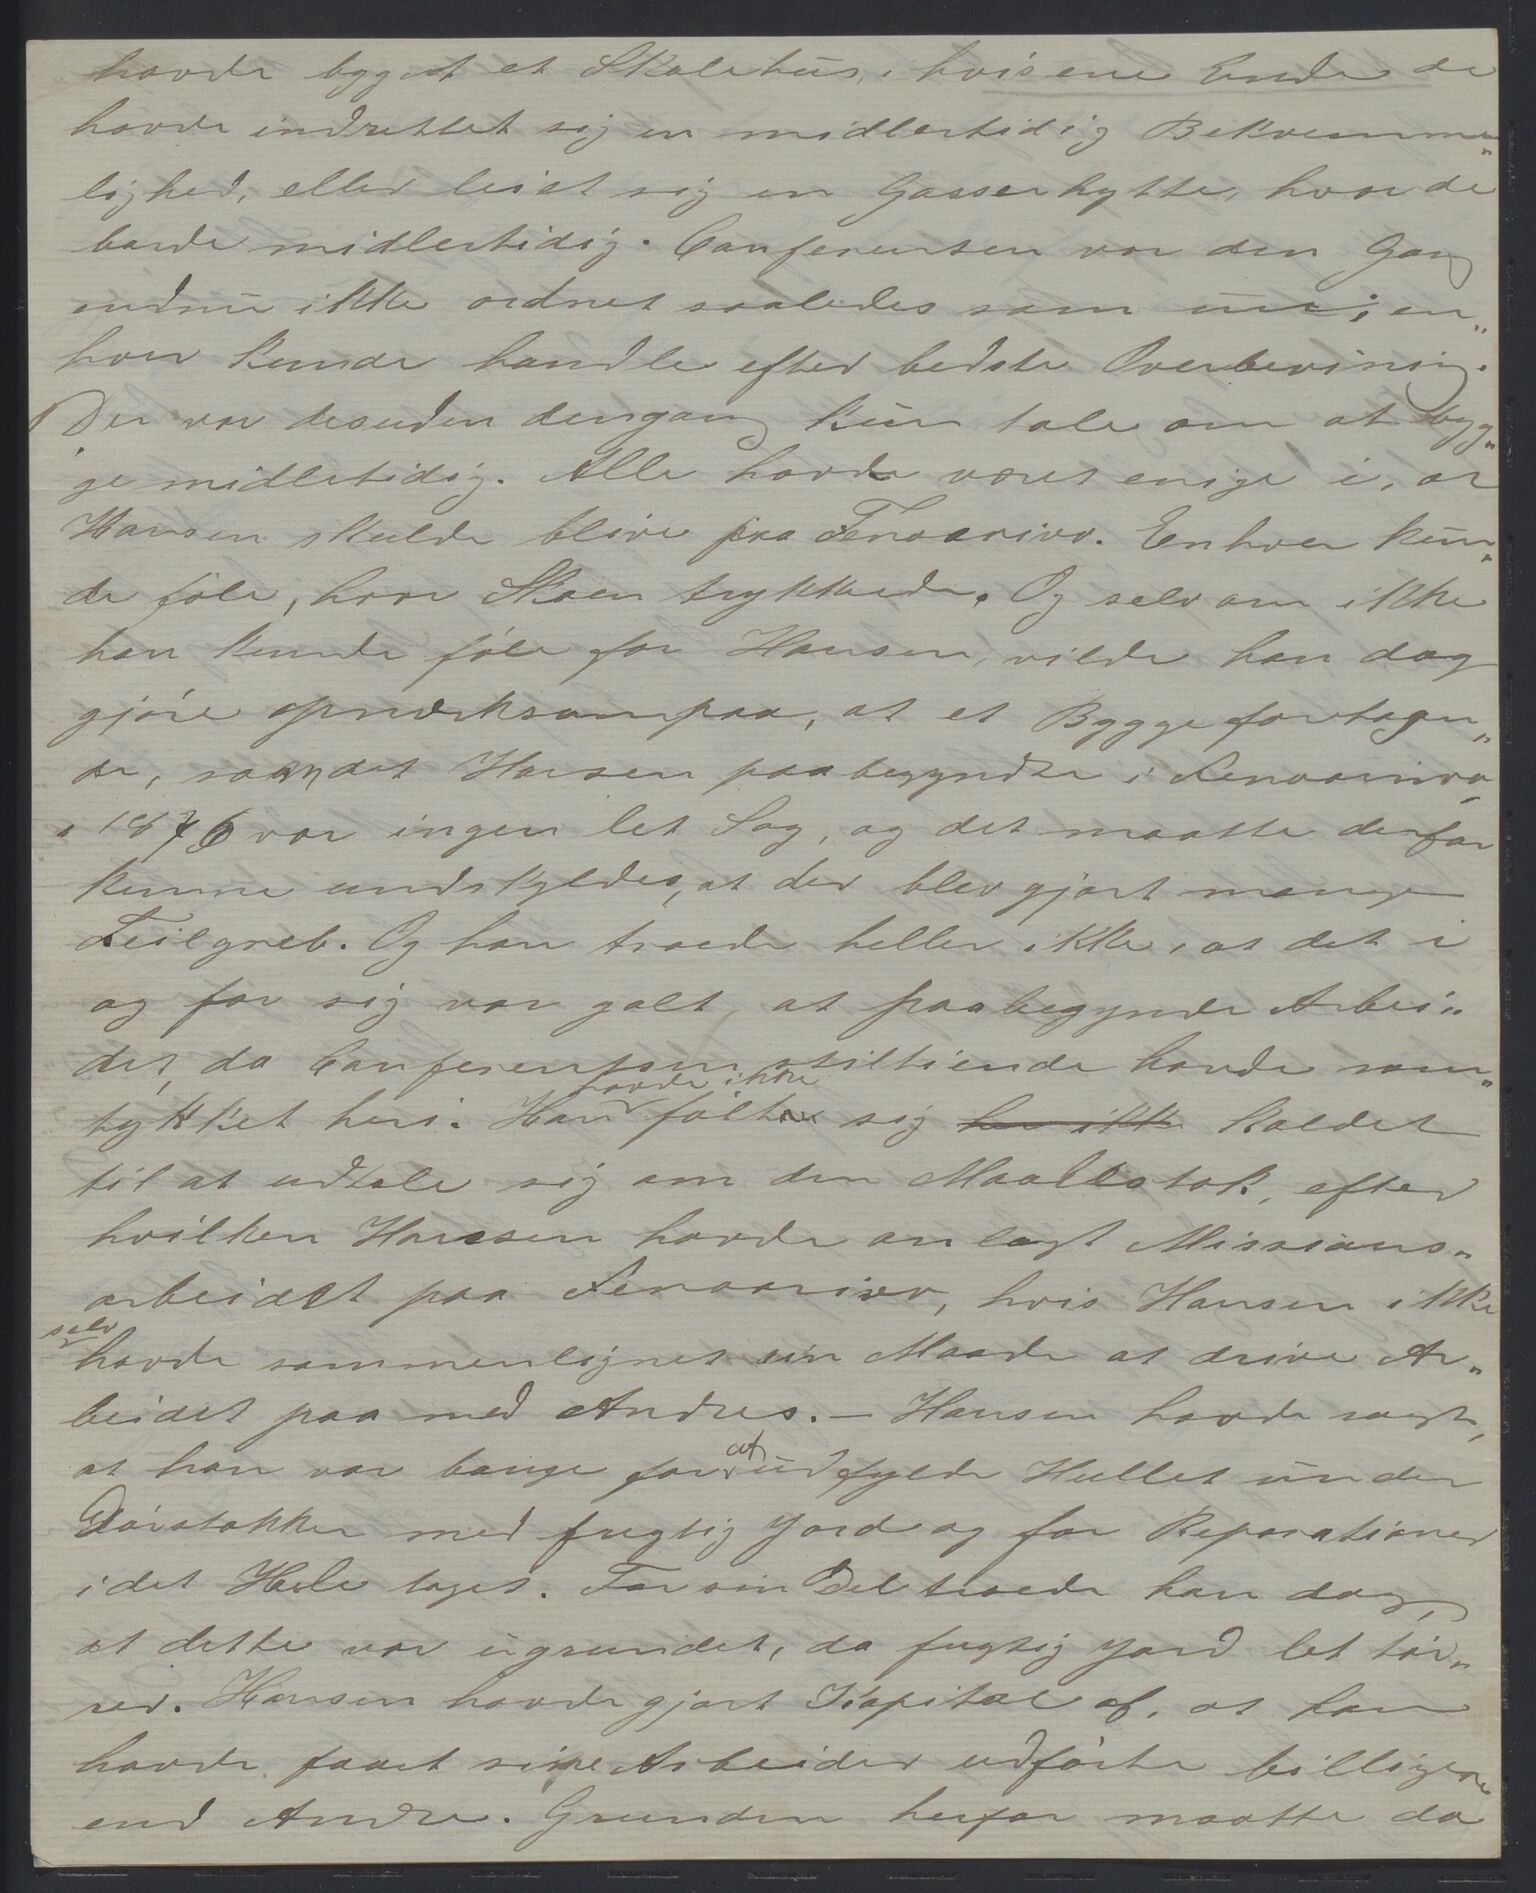 havde bygget et Skolehus, i hvis ene Ende de
havde indrettet sig en midlertidig Bekvemme„
lighed, eller leiet sig en Gasserhytte, hvor de
boede midlertidig. Conferentsen var den Gang
endnu ikke ordnet saaledes som nu; en„
hver kunde handle efter bedste Overbevisning.
Der var desuden dengang kun tale om at byg„
ge midletidig. Alle havde været enige i, at
Hansen skulde blive paa Fenoarivo. Enhver kun„
de føle, hvor Skoen trykkede. Og selv om ikke
han kunde føle for Hansen, vilde han dog
gjøre opmærksom paa, at et Byggeforetagen„
de, saa det Hansen paabegyndte i Fenoarivo
i 1876 var ingen let Sag, og det maatte derfor
kunne undskyldes, at der blev gjort mange
Feilgreb. Og han troede heller ikke, at det i
og for sig var galt at paabegynde Arbei„
det, da Conferentsen stiltiende havde sam„
tykket heri. Han havde ikke følt sig her ikke kaldet
til at udtale sig om den Maalestok, efter
hvilken Hansen havde anlagt Missions„
arbeidet paa Fenoarivo, hvis Hansen ikke
selv havde sammenlignet sin Maade at drive Ar„
beidet paa med Andres. – Hansen havde sagt,
at han var bange for at udfylde Hullet under
Dørstokken med fugtig Jord og for Reparationer
i det Hele taget. For sin Del troede han dog,
at dette var ugrundet, da fugtig Jord let tør„
rer. Hansen havde gjort Kapital af, at han
havde faaet sine Arbeider udførte billigere
end Andre. Grunden herfor maatte da